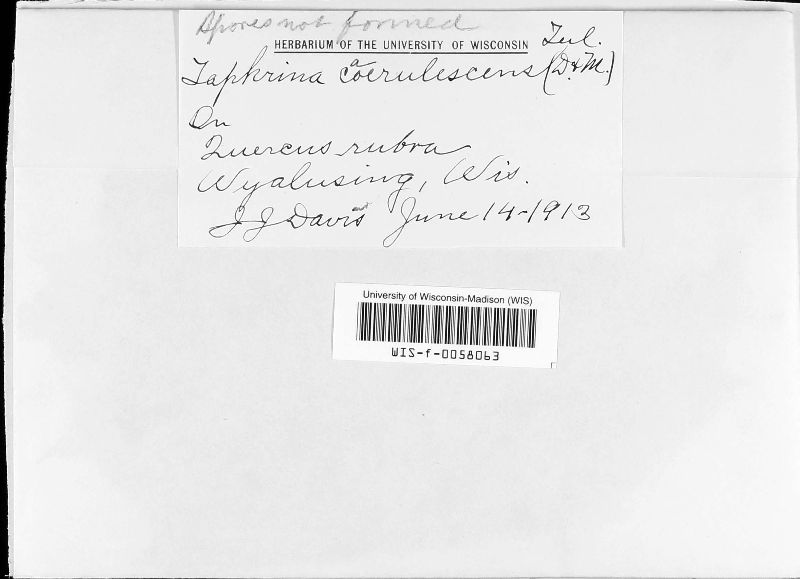 Spores not formed
HERBARIUM OF THE UNIVERSITY OF WISCONSIN
Taphrina caoerulescens (D.&M.) Tul.
On
Quercus rubra
Wyalusing, Wis.
J J Davis June 14-1913
University of Wisconsin-Madison (WIS)
WIS-f-0058063